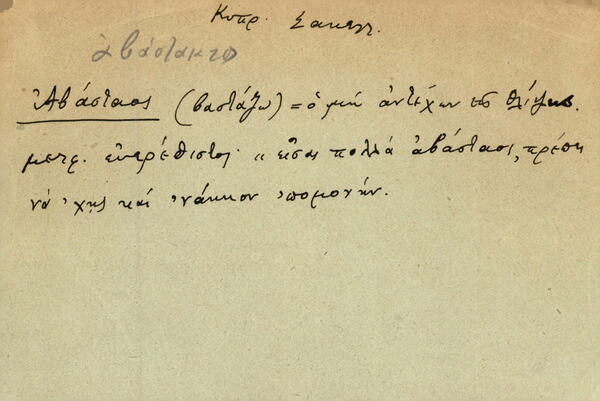 Κυπρ. Σακελ.
ἀβάστακτο
Ἀβάσταος (βαστάζω) = ὁ μὴ ἀντέχων εἰς θλίψεις.
μετφ. εὐερέθιστος· "εἶσαι πολλὰ ἀβάσταος, πρέπει
νὰ ᾿χῃς καὶ ᾿νάκκον ὑπομονήν.